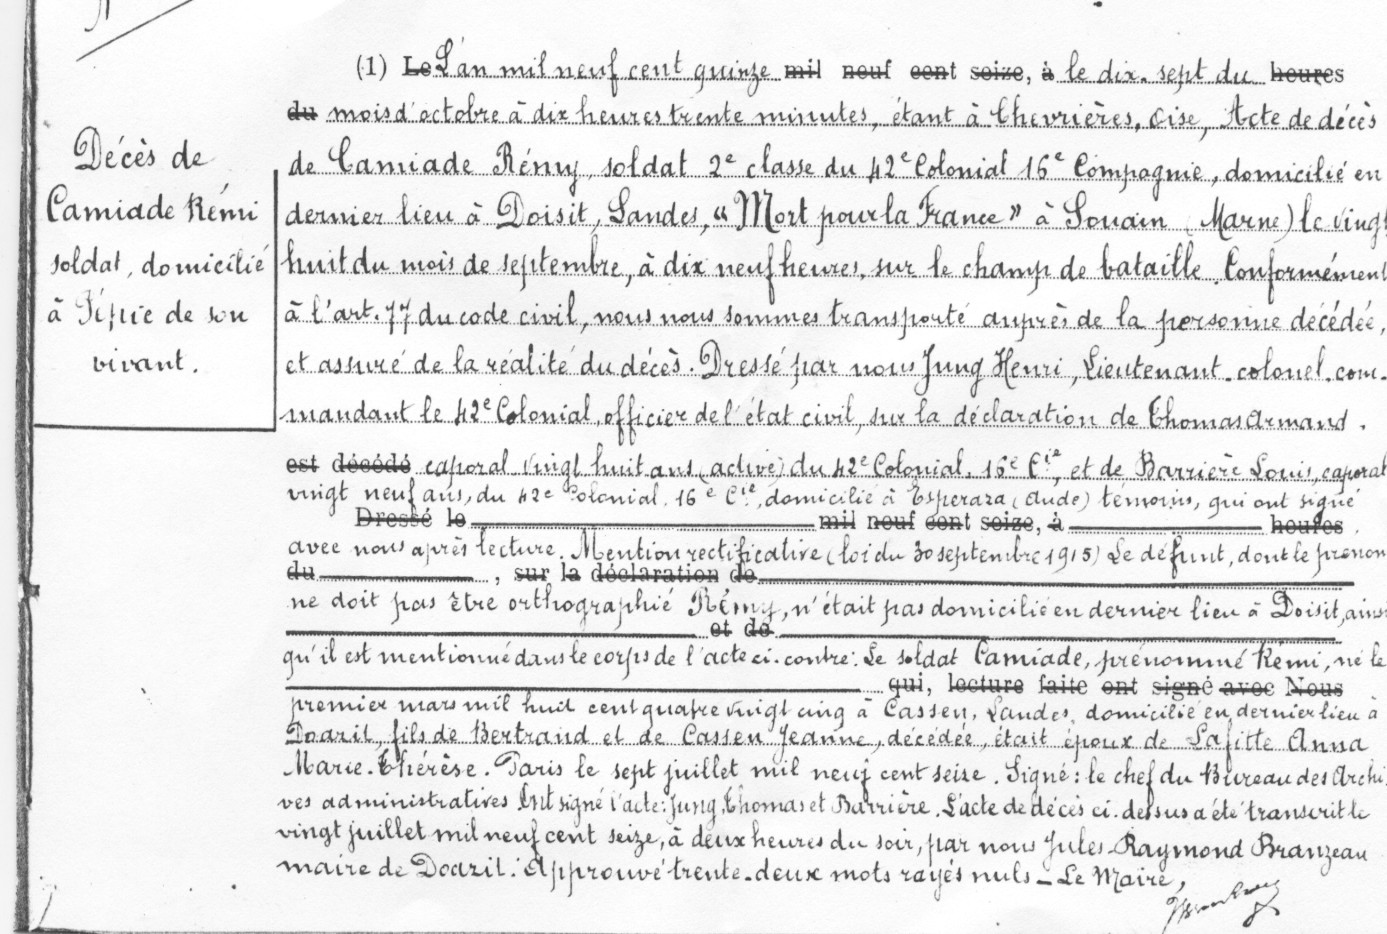 Décès de
Camiade Rémi
soldat, domicilié
à Pépie de son
vivant.
(1) Le L'an mil neuf cent quinze mil neuf cent seize, à le dix-sept du heures
du mois d'octobre à dix heures trente minutes, étant à Chevrières, Oise, Acte de décès
de Camiade Rémy, soldat 2e classe du 42e Colonial 16e Compagnie, domicilié en
dernier lieu à Doisit, Landes, "Mort pour la France" à Souain (Marne) le vingt
huit du mois de septembre, à dix neuf heures, sur le champ de bataille. Conformément
à l'art. 77 du code civil, nous nous sommes transporté auprès de la personne décédée,
et assuré de la réalité du décès. Dressé par nous Jung Henri, Lieutenant-colonel, com-
mandant le 42e Colonial, officier de l'état civil, sur la déclaration de Thomas Armand.
est décédé caporal vingt huit ans (active) du 42e Colonial, 16e Cie, et de Barrière Louis, caporal
vingt neuf ans, du 42e Colonial, 16e Cie, domicilié à Espéraza (Aude) témoins, qui ont signé
Dressé le mil neuf cent seize, à heures
avec nous après lecture. Mention rectificative (loi du 30 septembre 1915) Le défunt, dont le prénom
du , sur la déclaration de
ne doit pas être orthographié Rémy, n'était pas domicilié en dernier lieu à Doisit, ainsi
et de
qu'il est mentionné dans le corps de l'acte ci-contre. Le soldat Camiade, prénommé Rémi, né le
qui, lecture faite ont signé avec Nous
premier mars mil huit cent quatre vingt cinq à Cassen, Landes, domicilié en dernier lieu à
Doazit, fils de Bertrand et de Cassen Jeanne, décédée, était époux de Lafitte Anna
Marie-Thérèse. Paris le sept juillet mil neuf cent seize. Signé: le chef du Bureau des Archi-
ves administratives Ont signé l'acte: Jung, Thomas et Barrière. L'acte de décès ci-dessus a été transcrit le
vingt juillet mil neuf cent seize, à deux heures du soir, par nous Jules-Raymond Branzeau
maire de Doazit. Approuvé trente-deux mots rayés nuls - Le Maire,